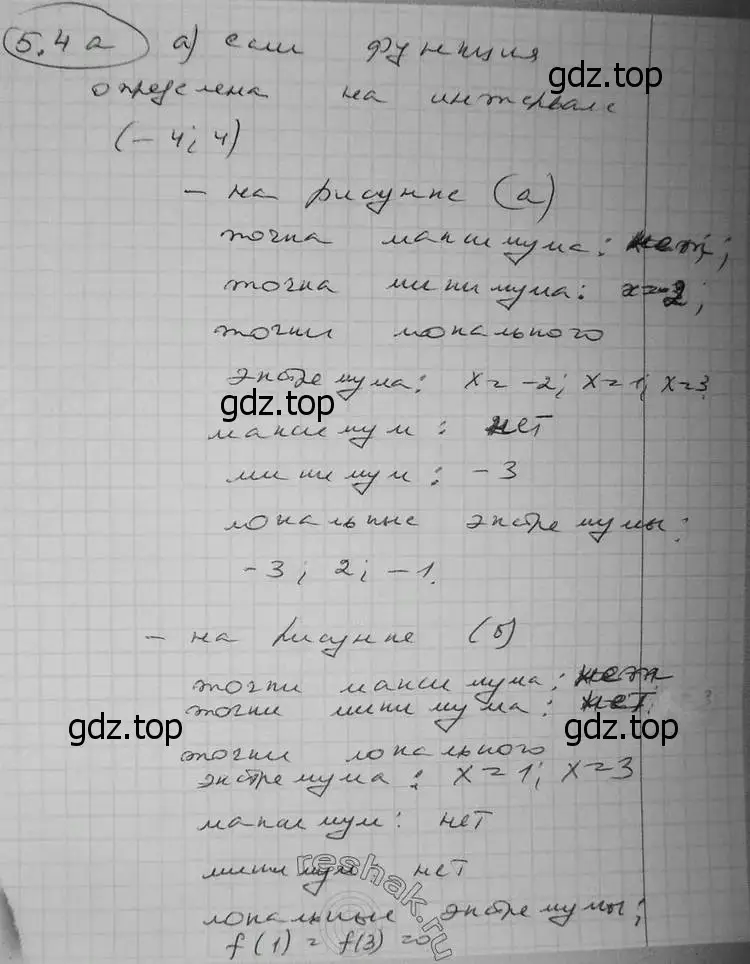 5.4 а а) если функция
gdz.top
определена на интервале
(-4; 4)
- на рисунке (а)
точка максимума: нет;
точка минимума: x=-2;
точки локального
экстремума: x=-2; x=1; x=3
gdz.top
максимум: нет
минимум: -3
локальные экстремумы:
-3; 2; -1.
gdz.top
- на рисунке (б)
точки максимума: нет
точки минимума: нет.
gdz.top
gdz.top
точки локального
экстремума: x=1; x=3
максимум: нет
минимум нет
reshak.ru
локальные экстремумы;
f(1)=f(3)=0